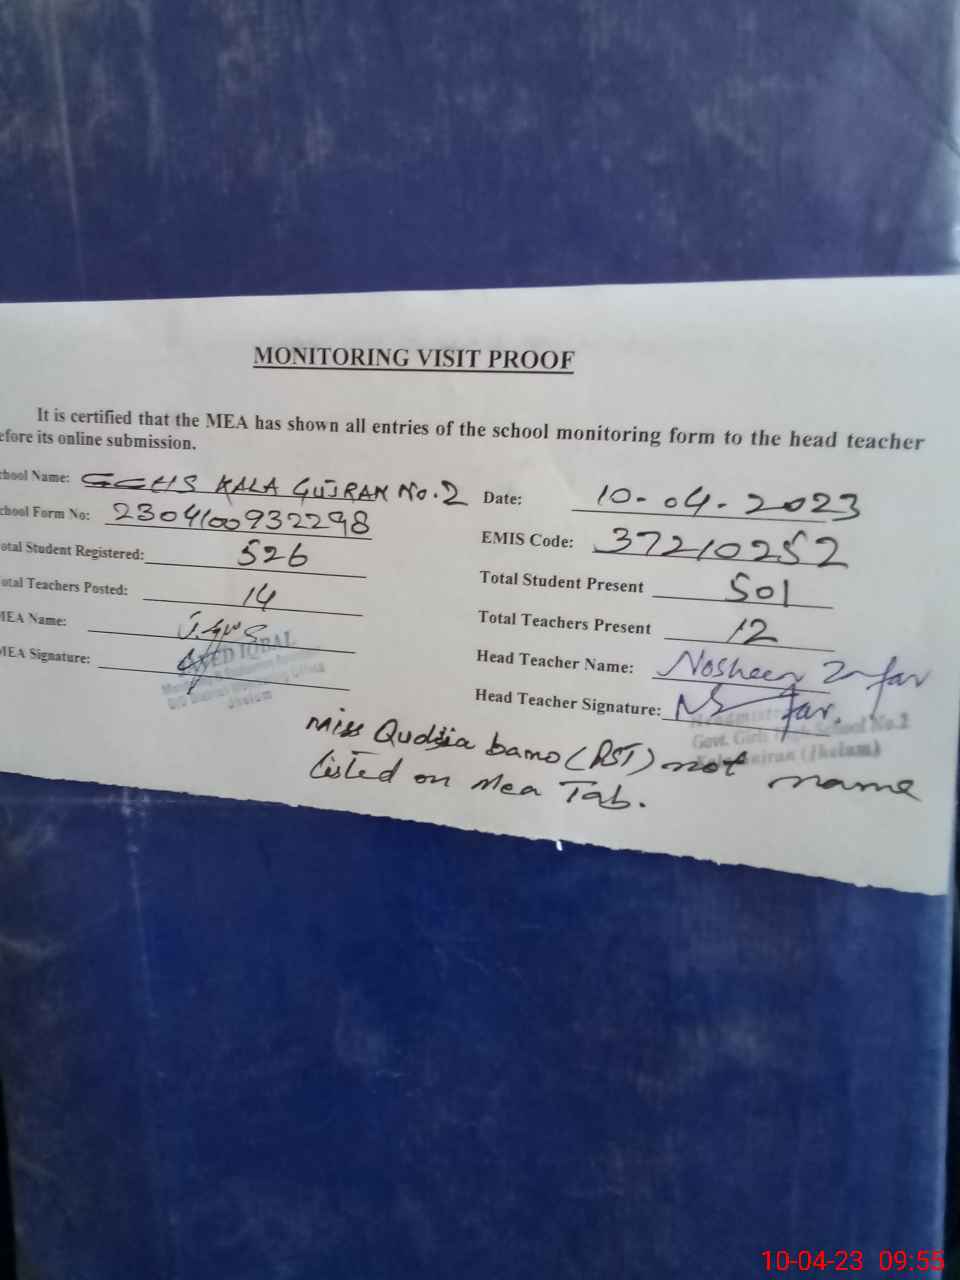 MONITORING VISIT PROOF
It is certified that the MEA has shown all entries of the school monitoring form to the head teacher
efore its online submission.
chool Name: GGHS KALA GUJRAN No.2 Date: 10-04-2023
chool Form No: 2304100932298 EMIS Code: 37210252
otal Student Registered: 526 Total Student Present 501
otal Teachers Posted: 14 Total Teachers Present 12
MEA Name: Head Teacher Name: Nosheen Zafar
MEA Signature: Head Teacher Signature:
IQBAL
Jhelum
Govt. Girls High School No.2
(Jhelum)
Miss Qudsia bano (PST) not name
listed on Mea Tab.
10-04-23 09:55